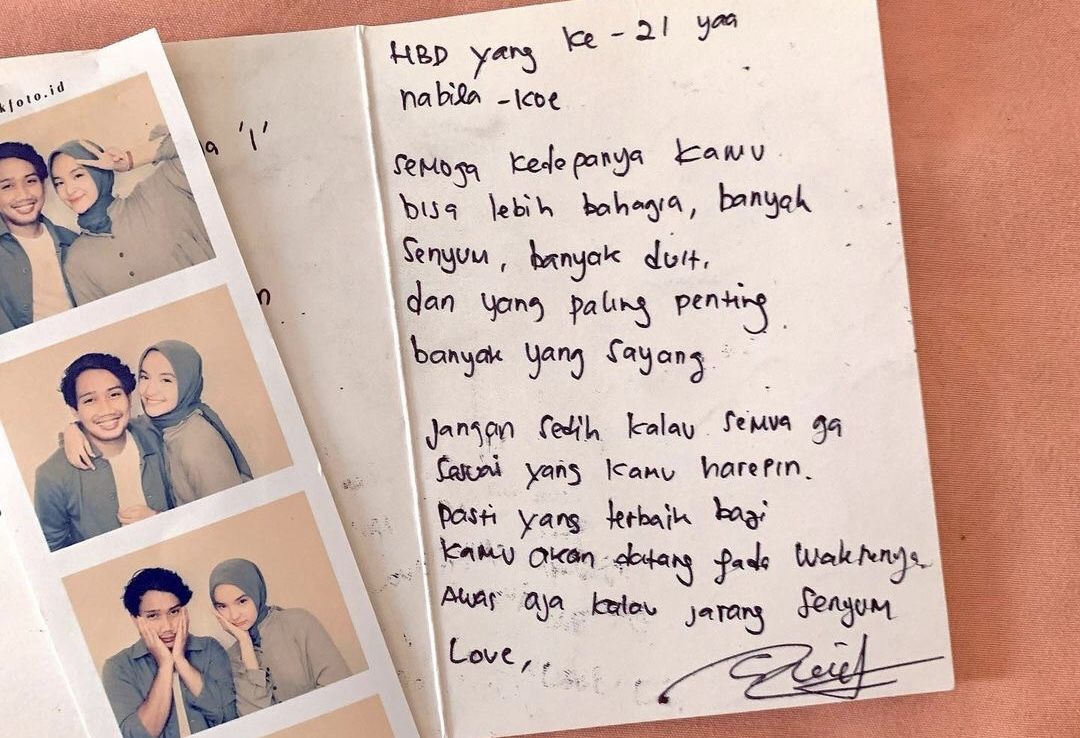 kfoto.id
a '1'
n
HBD yang ke - 21 yaa
nabila - koe
semoga kedepanya kamu
bisa lebih bahagia, banyak
senyum, banyak duit,
dan yang paling penting
banyak yang sayang
Jangan sedih kalau semua ga
sesuai yang kamu harepin.
pasti yang terbaik bagi
kamu akan datang pada waktunya
Awas aja kalau jarang senyum
Love,